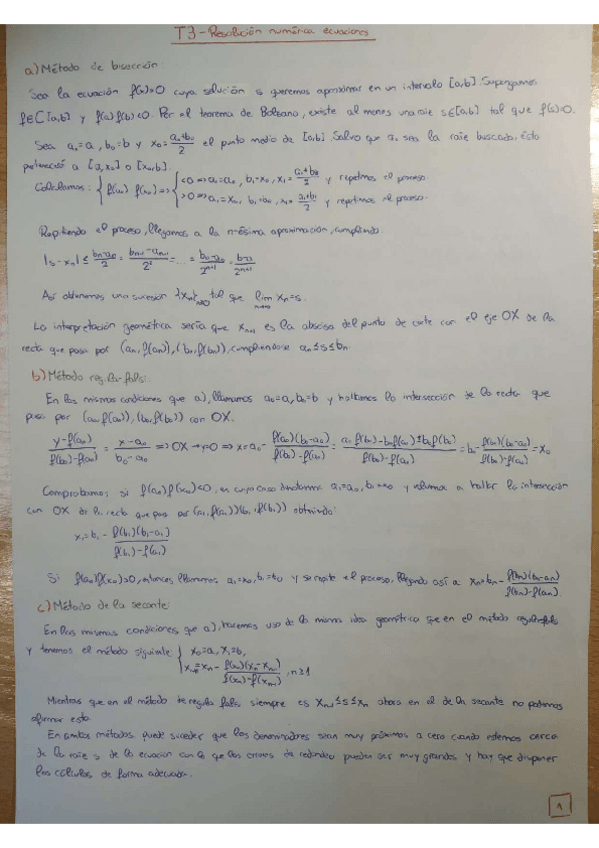 T3-Resolución numérica ecuaciones
a) Método de bisección:
Sea la ecuación f(x)=0 cuya solución s queremos aproximar en un intervalo [a,b]. Supongamos
f∈C[a,b] y f(a)f(b)<0. Por el teorema de Bolzano, existe al menos una raíz s∈[a,b] tal que f(s)=0.
Sea a₀=a, b₀=b y x₀=(a₀+b₀)/2 el punto medio de [a,b]. Salvo que sea la raíz buscada, ésta
pertenecerá a [a,x₀] o [x₀,b].
Calculamos: { f(a₀) f(x₀) => { <0 => a₁=a₀, b₁=x₀, x₁=(a₁+b₁)/2 y repetimos el proceso.
>0 => a₁=x₀, b₁=b₀, x₁=(a₁+b₁)/2 y repetimos el proceso.
Repitiendo el proceso, llegamos a la n-ésima aproximación, cumpliendo:
|s-xₙ| ≤ (bₙ-aₙ)/2 = (bₙ₋₁-aₙ₋₁)/2² = ... = (b₀-a₀)/2ⁿ⁺¹ = (b-a)/2ⁿ⁺¹
Así obtenemos una sucesión {xₙ} tal que lim xₙ=s.
La interpretación geométrica sería que xₙ₊₁ es la abscisa del punto de corte con el eje OX de la
recta que pasa por (aₙ, f(aₙ)), (bₙ, f(bₙ)), cumpliéndose aₙ≤s≤bₙ.
b) Método regula-falsi:
En las mismas condiciones que a), llamamos a₀=a, b₀=b y hallamos la intersección de la recta que
pasa por (a₀, f(a₀)), (b₀, f(b₀)) con OX.
(y-f(a₀))/(f(b₀)-f(a₀)) = (x-a₀)/(b₀-a₀) => OX → y=0 => x=a₀- f(a₀)(b₀-a₀)/(f(b₀)-f(a₀)) = (a₀f(b₀)-b₀f(a₀)±b₀f(b₀))/(f(b₀)-f(a₀)) = b₀- f(b₀)(b₀-a₀)/(f(b₀)-f(a₀)) = x₀
Comprobamos si f(a₀)f(x₀)<0, en cuyo caso a₁=a₀, b₁=x₀ y volvemos a hallar la intersección
con OX de la recta que pasa por (a₁, f(a₁)) (b₁, f(b₁)) obteniendo:
x₁=b₁- f(b₁)(b₁-a₁)/(f(b₁)-f(a₁))
Si f(a₀)f(x₀)>0, entonces llamamos a₁=x₀, b₁=b₀ y se repite el proceso, llegando así a xₙ=bₙ- f(bₙ)(bₙ-aₙ)/(f(bₙ)-f(aₙ)).
c) Método de la secante:
En las mismas condiciones que a), hacemos uso de la misma idea geométrica que en el método regula falsi
y tenemos el método siguiente: { x₀=a, x₁=b,
xₙ₊₁=xₙ- f(xₙ)(xₙ-xₙ₋₁)/(f(xₙ)-f(xₙ₋₁)), n≥1
Mientras que en el método de regula falsi siempre es xₙ₋₁≤s≤xₙ ahora en el de la secante no podemos
afirmar esto.
En ambos métodos, puede suceder que los denominadores sean muy próximos a cero cuando estemos cerca
de la raíz s de la ecuación con lo que los errores de redondeo pueden ser muy grandes y hay que disponer
los cálculos de forma adecuada.
1